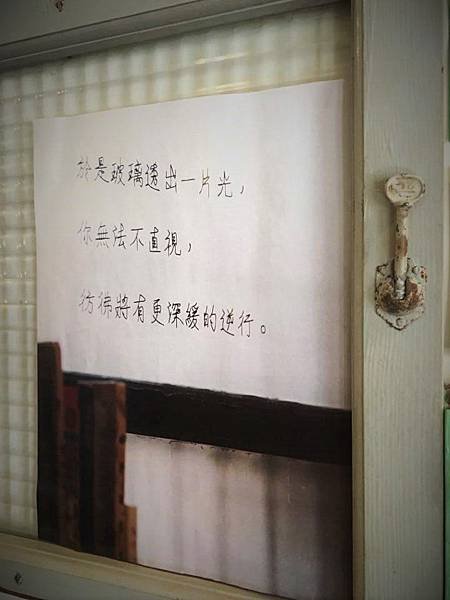 於是玻璃透出一片光，
你無法不直視，
彷彿將有更深緩的逆行。